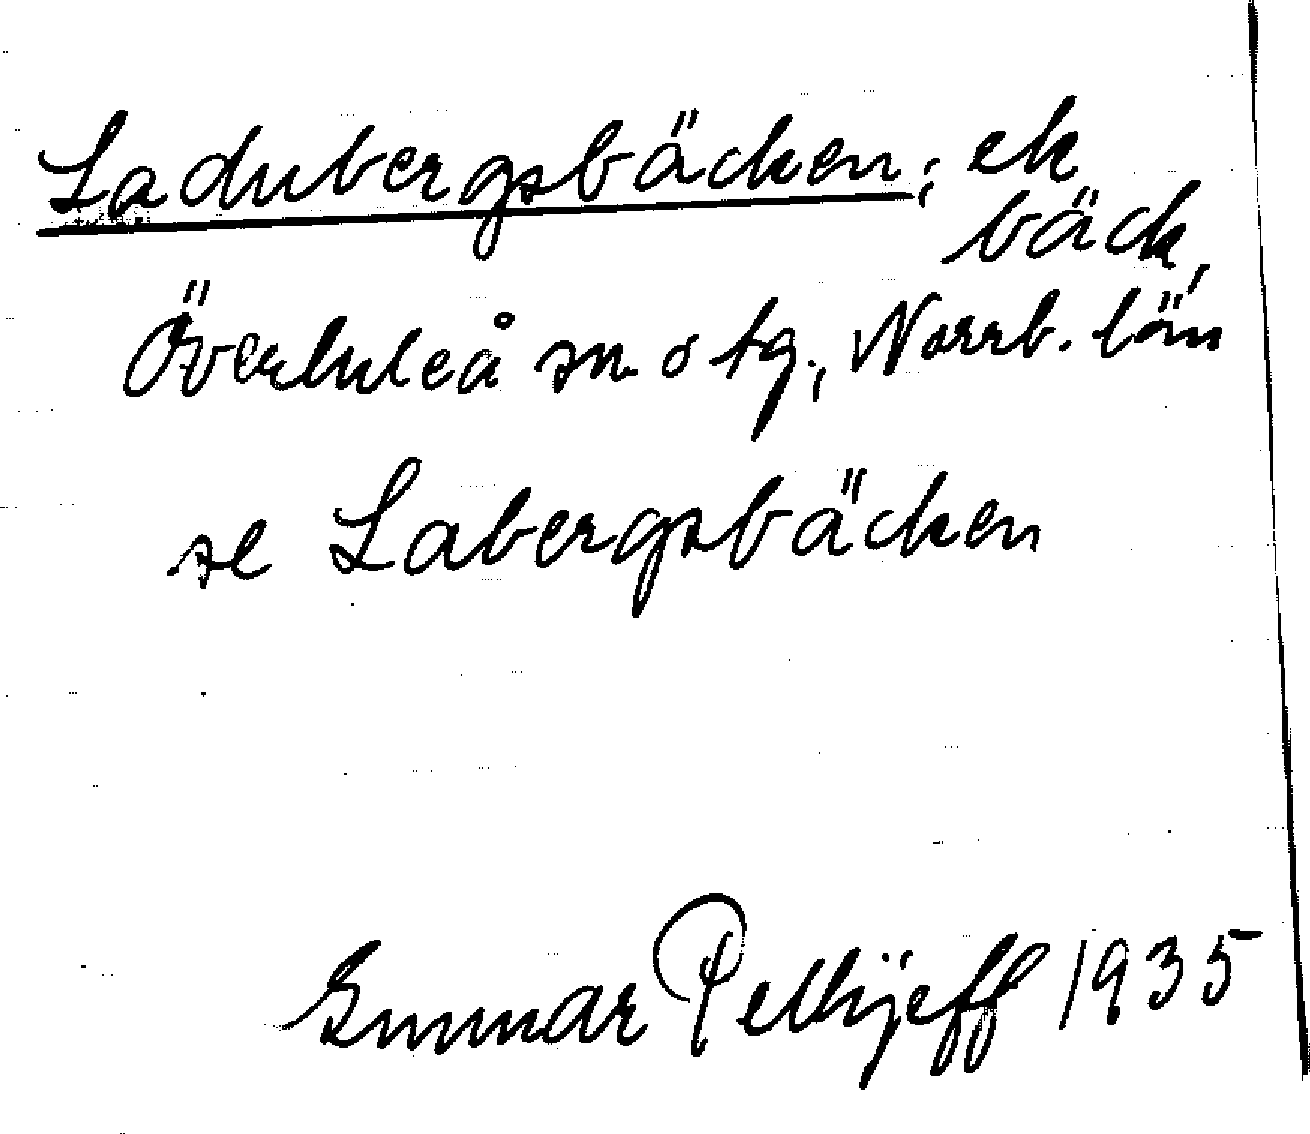 Ladubergsbäcken; ek
bäck,
Överluleå sn o tg., Norrb. län
se Labergsbäcken
Gunnar Pellijeff 1935